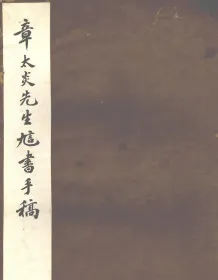 章太炎先生訄書手稿